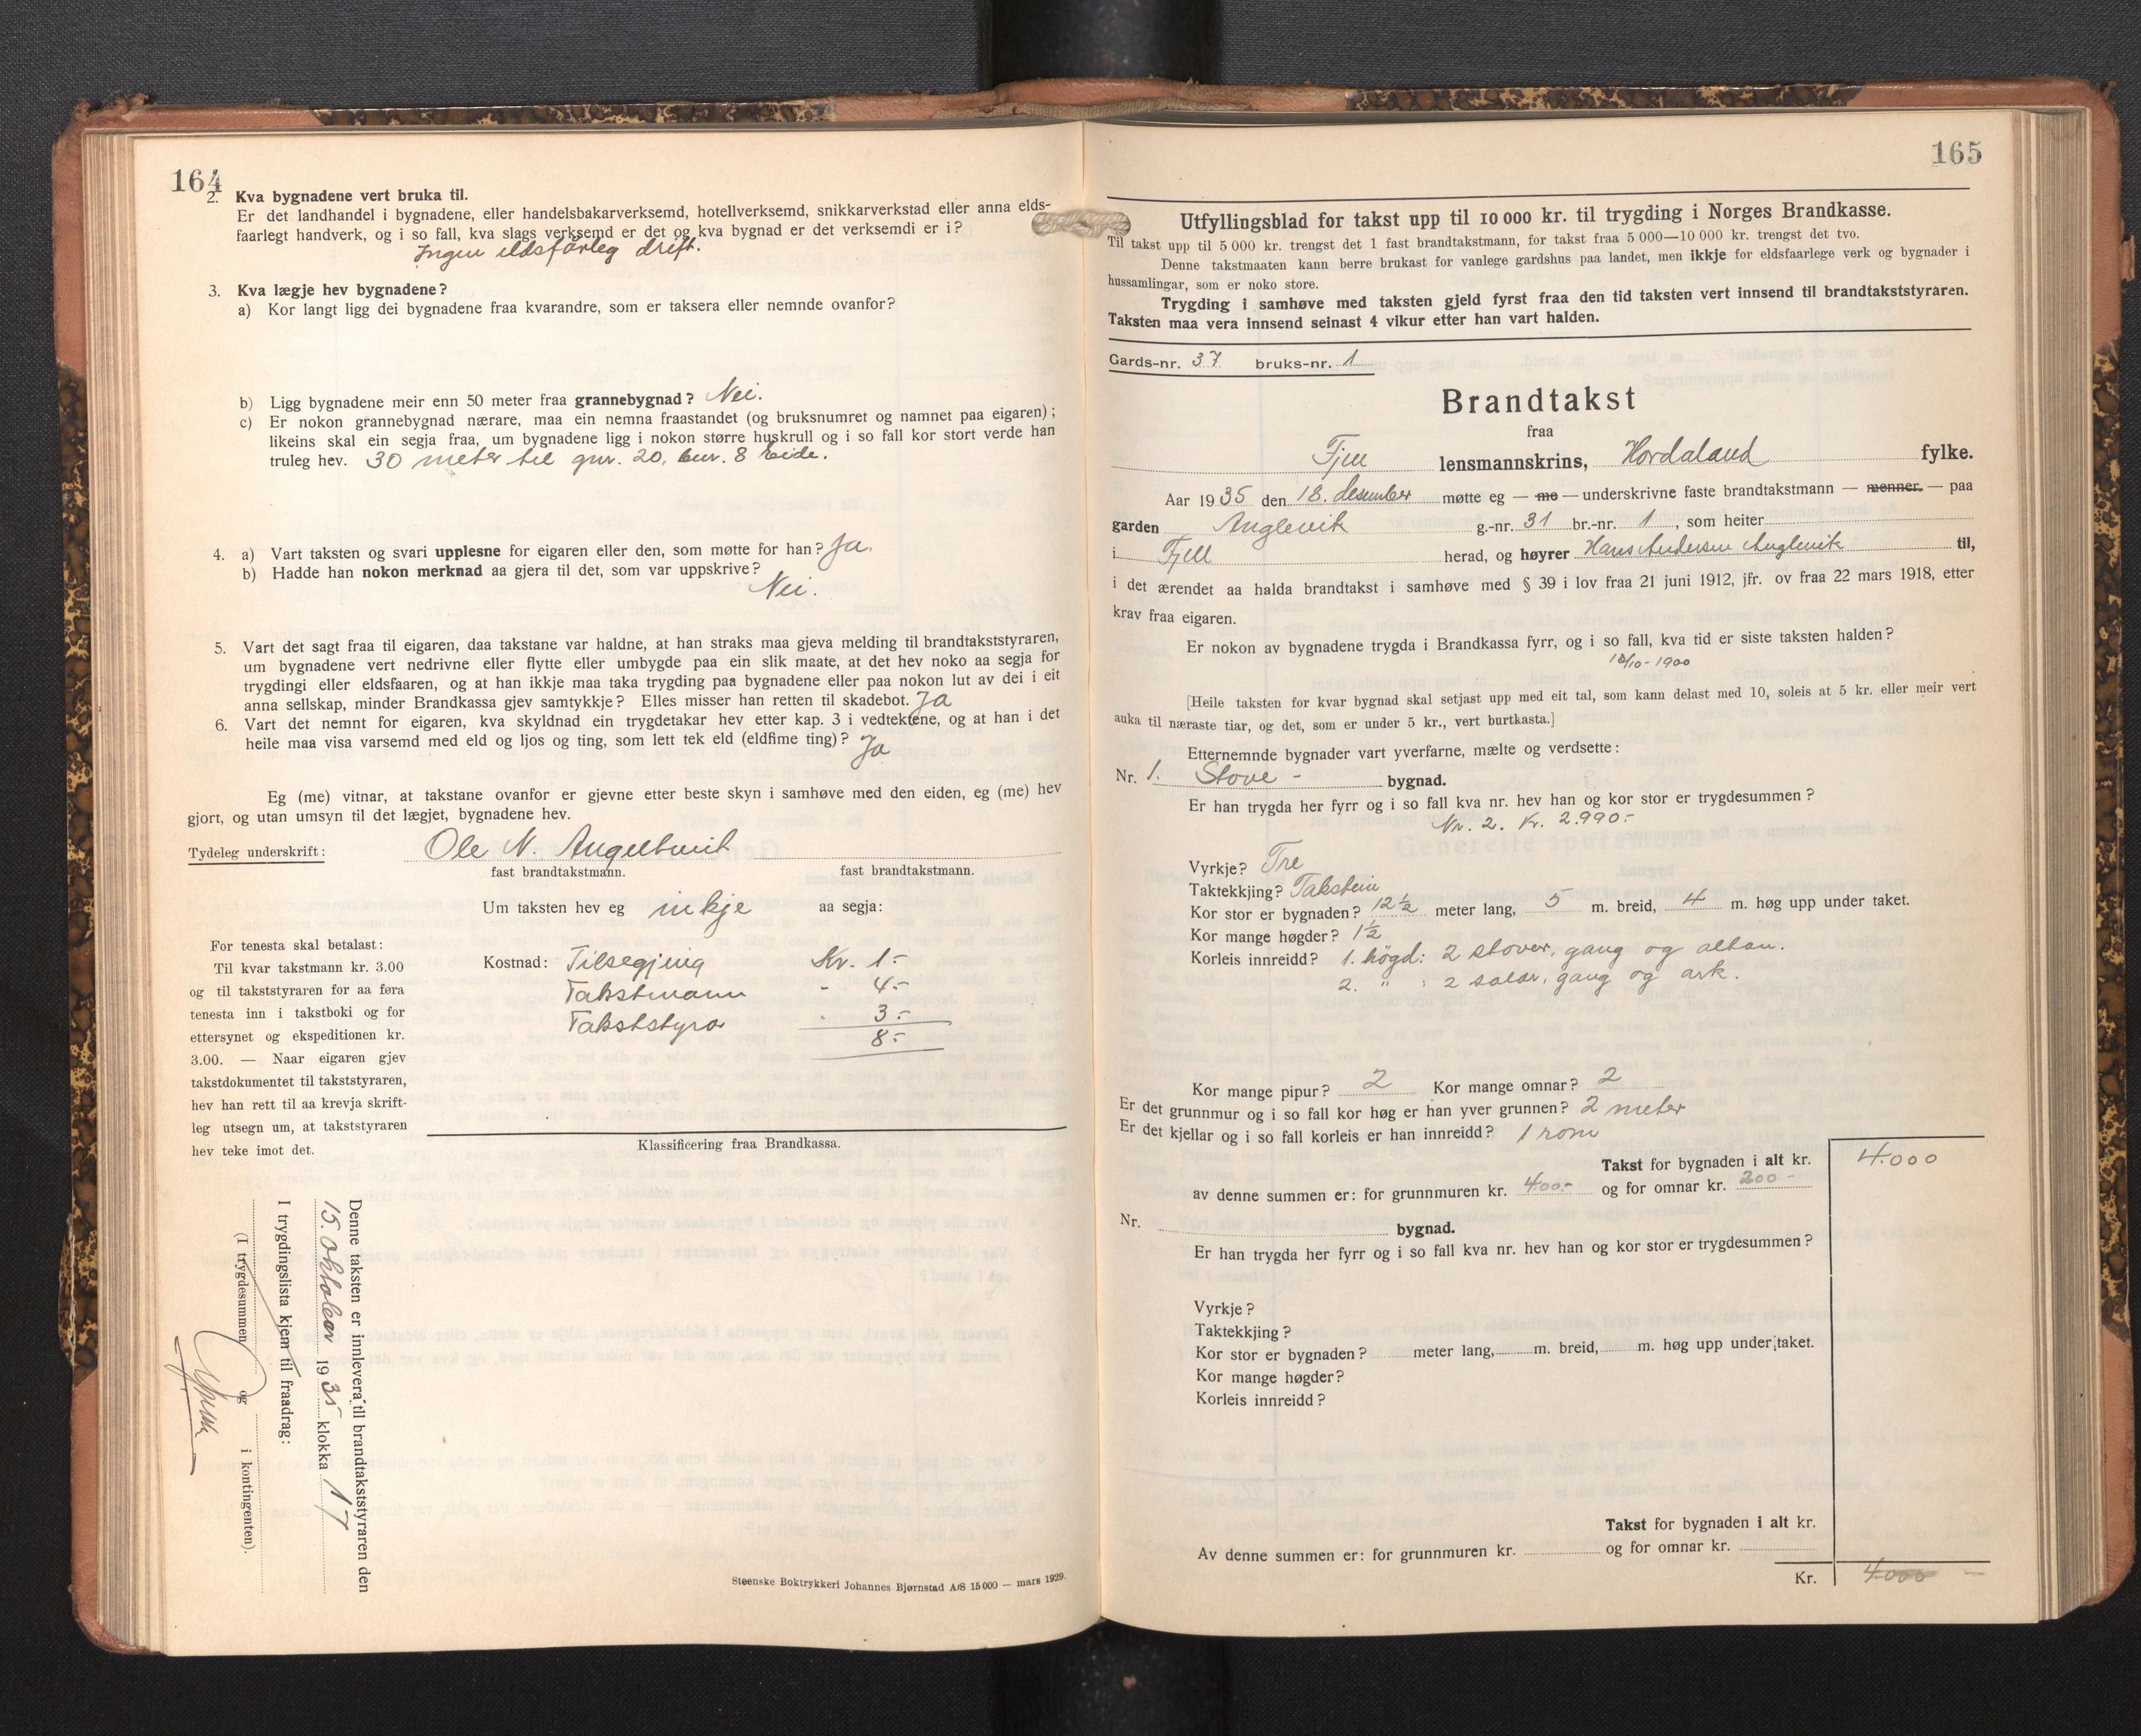 164
2. Kva bygnadene vert bruka til.
Er det landhandel i bygnadene, eller handelsbakarverksemd, hotellverksemd, snikkarverkstad eller anna elds-
faarlegt handverk, og i so fall, kva slags verksemd er det og kva bygnad er det verksemdi er i?
Ingen eldsfårleg drift.
3. Kva lægje hev bygnadene?
a) Kor langt ligg dei bygnadene fraa kvarandre, som er taksera eller nemnde ovanfor?
b) Ligg bygnadene meir enn 50 meter fraa grannebygnad? Nei.
c) Er nokon grannebygnad nærare, maa ein nemna fraastandet (og bruksnumret og namnet paa eigaren);
likeins skal ein segja fraa, um bygnadene ligg i nokon større huskrull og i so fall kor stort verde han
truleg hev. 30 meter til gnr. 20, bnr. 8 Eide.
4. a) Vart taksten og svari upplesne for eigaren eller den, som møtte for han? Ja.
b) Hadde han nokon merknad aa gjera til det, som var uppskrive?
Nei.
5. Vart det sagt fraa til eigaren, daa takstane var haldne, at han straks maa gjeva melding til brandtakststyraren,
um bygnadene vert nedrivne eller flytte eller umbygde paa ein slik maate, at det hev noko aa segja for
trygdingi eller eldsfaaren, og at han ikkje maa taka trygding paa bygnadene eller paa nokon lut av dei i eit
anna sellskap, minder Brandkassa gjev samtykkje? Elles misser han retten til skadebot. Ja
6. Vart det nemnt for eigaren, kva skyldnad ein trygdetakar hev etter kap. 3 i vedtektene, og at han i det
heile maa visa varsemd med eld og ljos og ting, som lett tek eld (eldfime ting)? Ja
Eg (me) vitnar, at takstane ovanfor er gjevne etter beste skyn i samhøve med den eiden, eg (me) hev
gjort, og utan umsyn til det lægjet, bygnadene hev.
Tydeleg underskrift: Ole N. Angeltveit
fast brandtakstmann. fast brandtakstmann.
Um taksten hev eg inkje aa segja:
For tenesta skal betalast:
Til kvar takstmann kr. 3.00
og til takststyraren for aa føra
tenesta inn i takstboki og for
ettersynet og ekspeditionen kr.
3.00. — Naar eigaren gjev
takstdokumentet til takststyraren,
hev han rett til aa krevja skrift-
leg utsegn um, at takststyraren
hev teke imot det.
Kostnad: Tilsegjing Kr. 1.-
Takstmann - 4.-
Takststyrar - 3.-
8.-
Klassificering fraa Brandkassa.
Denne taksten er innlevera til brandtakststyraren den
15. oktober 1935 klokka 17
I trygdingslista kjem til fraadrag:
(I trygdesummen og i kontingenten).
Steenske Boktrykkeri Johannes Bjørnstad A/S 15 000 — mars 1929.
165
Utfyllingsblad for takst upp til 10 000 kr. til trygding i Norges Brandkasse.
Til takst upp til 5 000 kr. trengst det 1 fast brandtakstmann, for takst fraa 5 000—10 000 kr. trengst det tvo.
Denne takstmaaten kann berre brukast for vanlege gardshus paa landet, men ikkje for eldsfaarlege verk og bygnader i
hussamlingar, som er noko store.
Trygding i samhøve med taksten gjeld fyrst fraa den tid taksten vert innsend til brandtakststyraren.
Taksten maa vera innsend seinast 4 vikur etter han vart halden.
Gards-nr. 37 bruks-nr. 1
Brandtakst
fraa
Fjell lensmannskrins, Hordaland fylke.
Aar 1935 den 18. desember møtte eg — me — underskrivne faste brandtakstmann — menner. — paa
garden Anglevik g.-nr. 31 br.-nr. 1, som heiter
i Fjell herad, og høyrer Hans Andersen Anglevik til,
i det ærendet aa halda brandtakst i samhøve med § 39 i lov fraa 21 juni 1912, jfr. ov fraa 22 mars 1918, etter
krav fraa eigaren.
Er nokon av bygnadene trygda i Brandkassa fyrr, og i so fall, kva tid er siste taksten halden?
18/10-1900
[Heile taksten for kvar bygnad skal setjast upp med eit tal, som kann delast med 10, soleis at 5 kr. eller meir vert
auka til næraste tiar, og det, som er under 5 kr., vert burtkasta.]
Etternemnde bygnader vart yverfarne, mælte og verdsette:
Nr. 1. Stove - bygnad.
Er han trygda her fyrr og i so fall kva nr. hev han og kor stor er trygdesummen?
Nr. 2. Kr. 2.990.-
Vyrkje? Tre
Taktekkjing? Takstein
Kor stor er bygnaden? 12½ meter lang, 5 m. breid, 4 m. høg upp under taket.
Kor mange høgder? 1½
Korleis innreidd? 1. högd: 2 stover, gang og altan.
2. " : 2 salar, gang og ark.
Kor mange pipur? 2 Kor mange omnar? 2
Er det grunnmur og i so fall kor høg er han yver grunnen? 2 meter
Er det kjellar og i so fall korleis er han innreidd? 1 rom
Takst for bygnaden i alt kr. 4.000
av denne summen er: for grunnmuren kr. 400.- og for omnar kr. 200 -
Nr. bygnad.
Er han trygda her fyrr og i so fall kva nr. hev han og kor stor er trygdesummen?
Vyrkje?
Taktekkjing?
Kor stor er bygnaden? meter lang, m. breid, m. høg upp under taket.
Kor mange høgder?
Korleis innreidd?
Takst for bygnaden i alt kr.
Av denne summen er: for grunnmuren kr. og for omnar kr.
Kr. 4.000 -